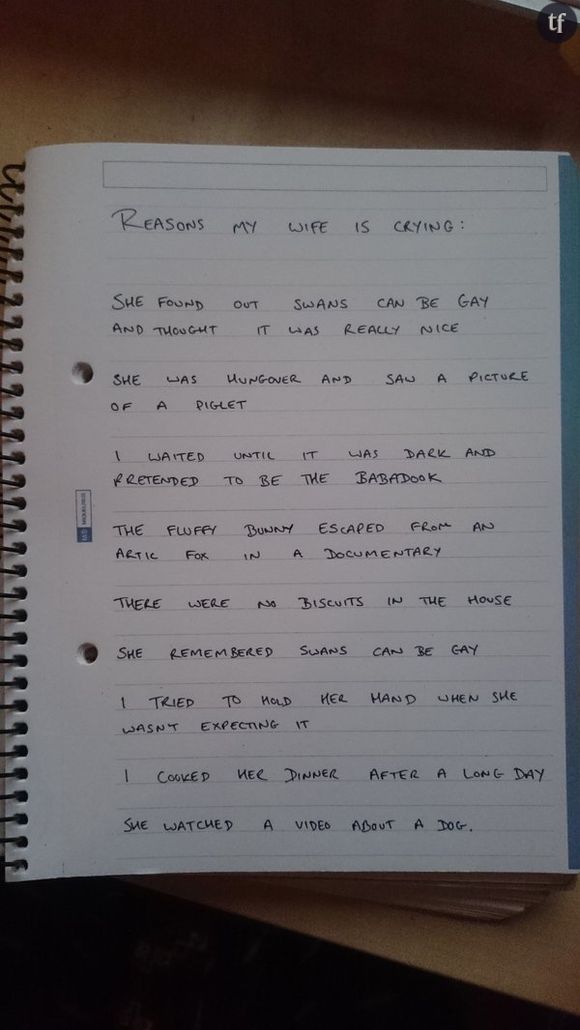 tf
REASONS MY WIFE IS CRYING:
SHE FOUND OUT SWANS CAN BE GAY
AND THOUGHT IT WAS REALLY NICE
SHE WAS HUNGOVER AND SAW A PICTURE
OF A PIGLET
I WAITED UNTIL IT WAS DARK AND
PRETENDED TO BE THE BABADOOK
THE FLUFFY BUNNY ESCAPED FROM AN
ARTIC FOX IN A DOCUMENTARY
THERE WERE NO BISCUITS IN THE HOUSE
SHE REMEMBERED SWANS CAN BE GAY
I TRIED TO HOLD HER HAND WHEN SHE
WASNT EXPECTING IT
I COOKED HER DINNER AFTER A LONG DAY
SHE WATCHED A VIDEO ABOUT A DOG.